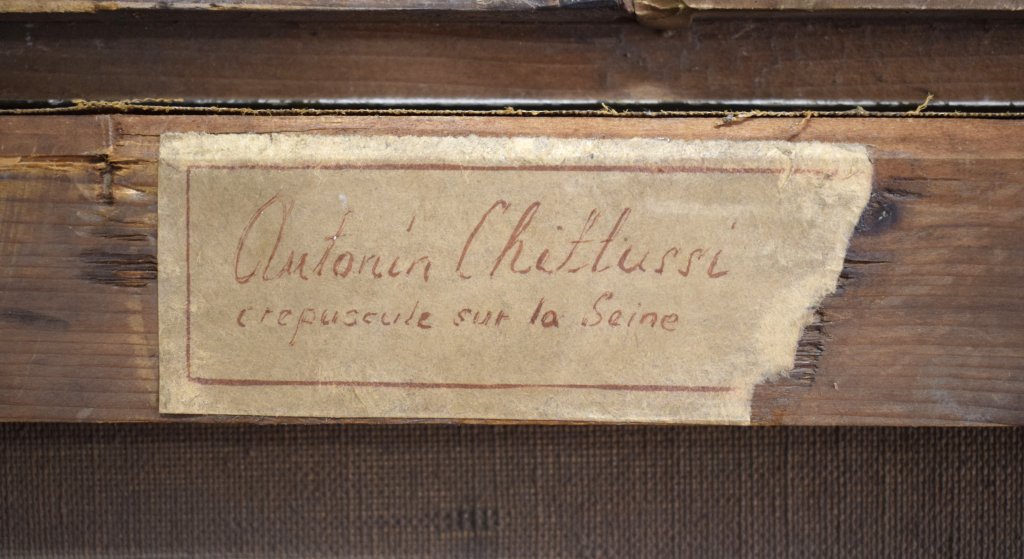 Antonin Chittussi
crepuscule sur la Seine